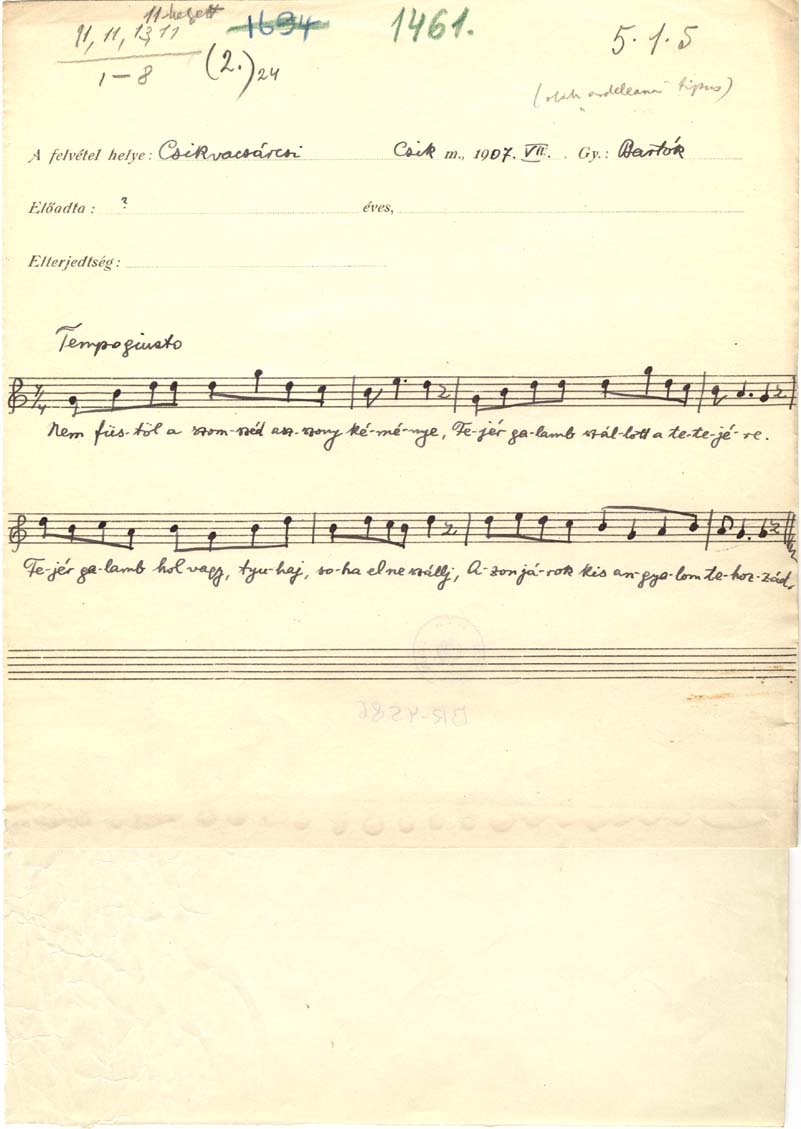 11 helyett
11, 11, 13, 11 1694 1461. 5. 1. 5
1-8 (2.) 24
(oláh ardeleana tipus)
A felvétel helye: Csikvacsárcsi Csik m., 1907. VII. Gy.: Bartók
Előadta: ? éves,
Elterjedtség:
Tempo giusto
Nem füs-töl a szom-széd asz-szony ké-mé-nye, Fe-jér ga-lamb szál-lott a te-te-jé-re.
Fe-jér ga-lamb hol vagy, tyu-haj, so-ha el ne szállj, A-zon já-rok kis an-gya-lom te-hoz-zád.
BR-4586